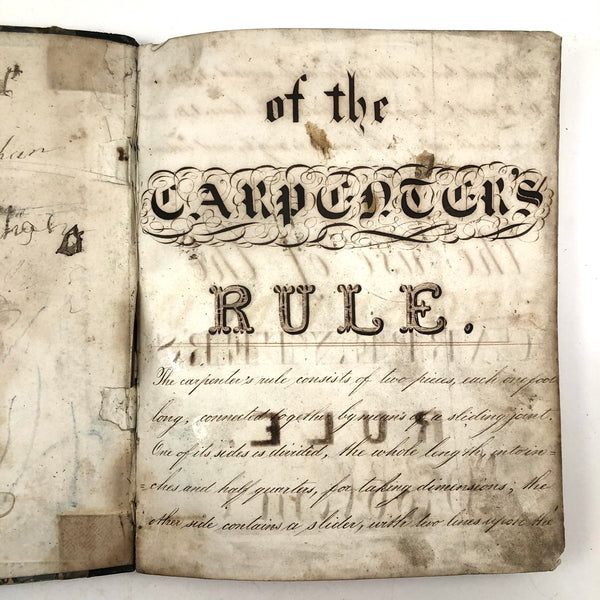 of the
CARPENTER'S
RULE.
The carpenter's rule consists of two pieces, each one foot
long, connected together by means of a sliding joint.
One of its sides is divided, the whole length, into in=
=ches and half quarters, for taking dimensions, the
other side contains a slider, with two lines upon the